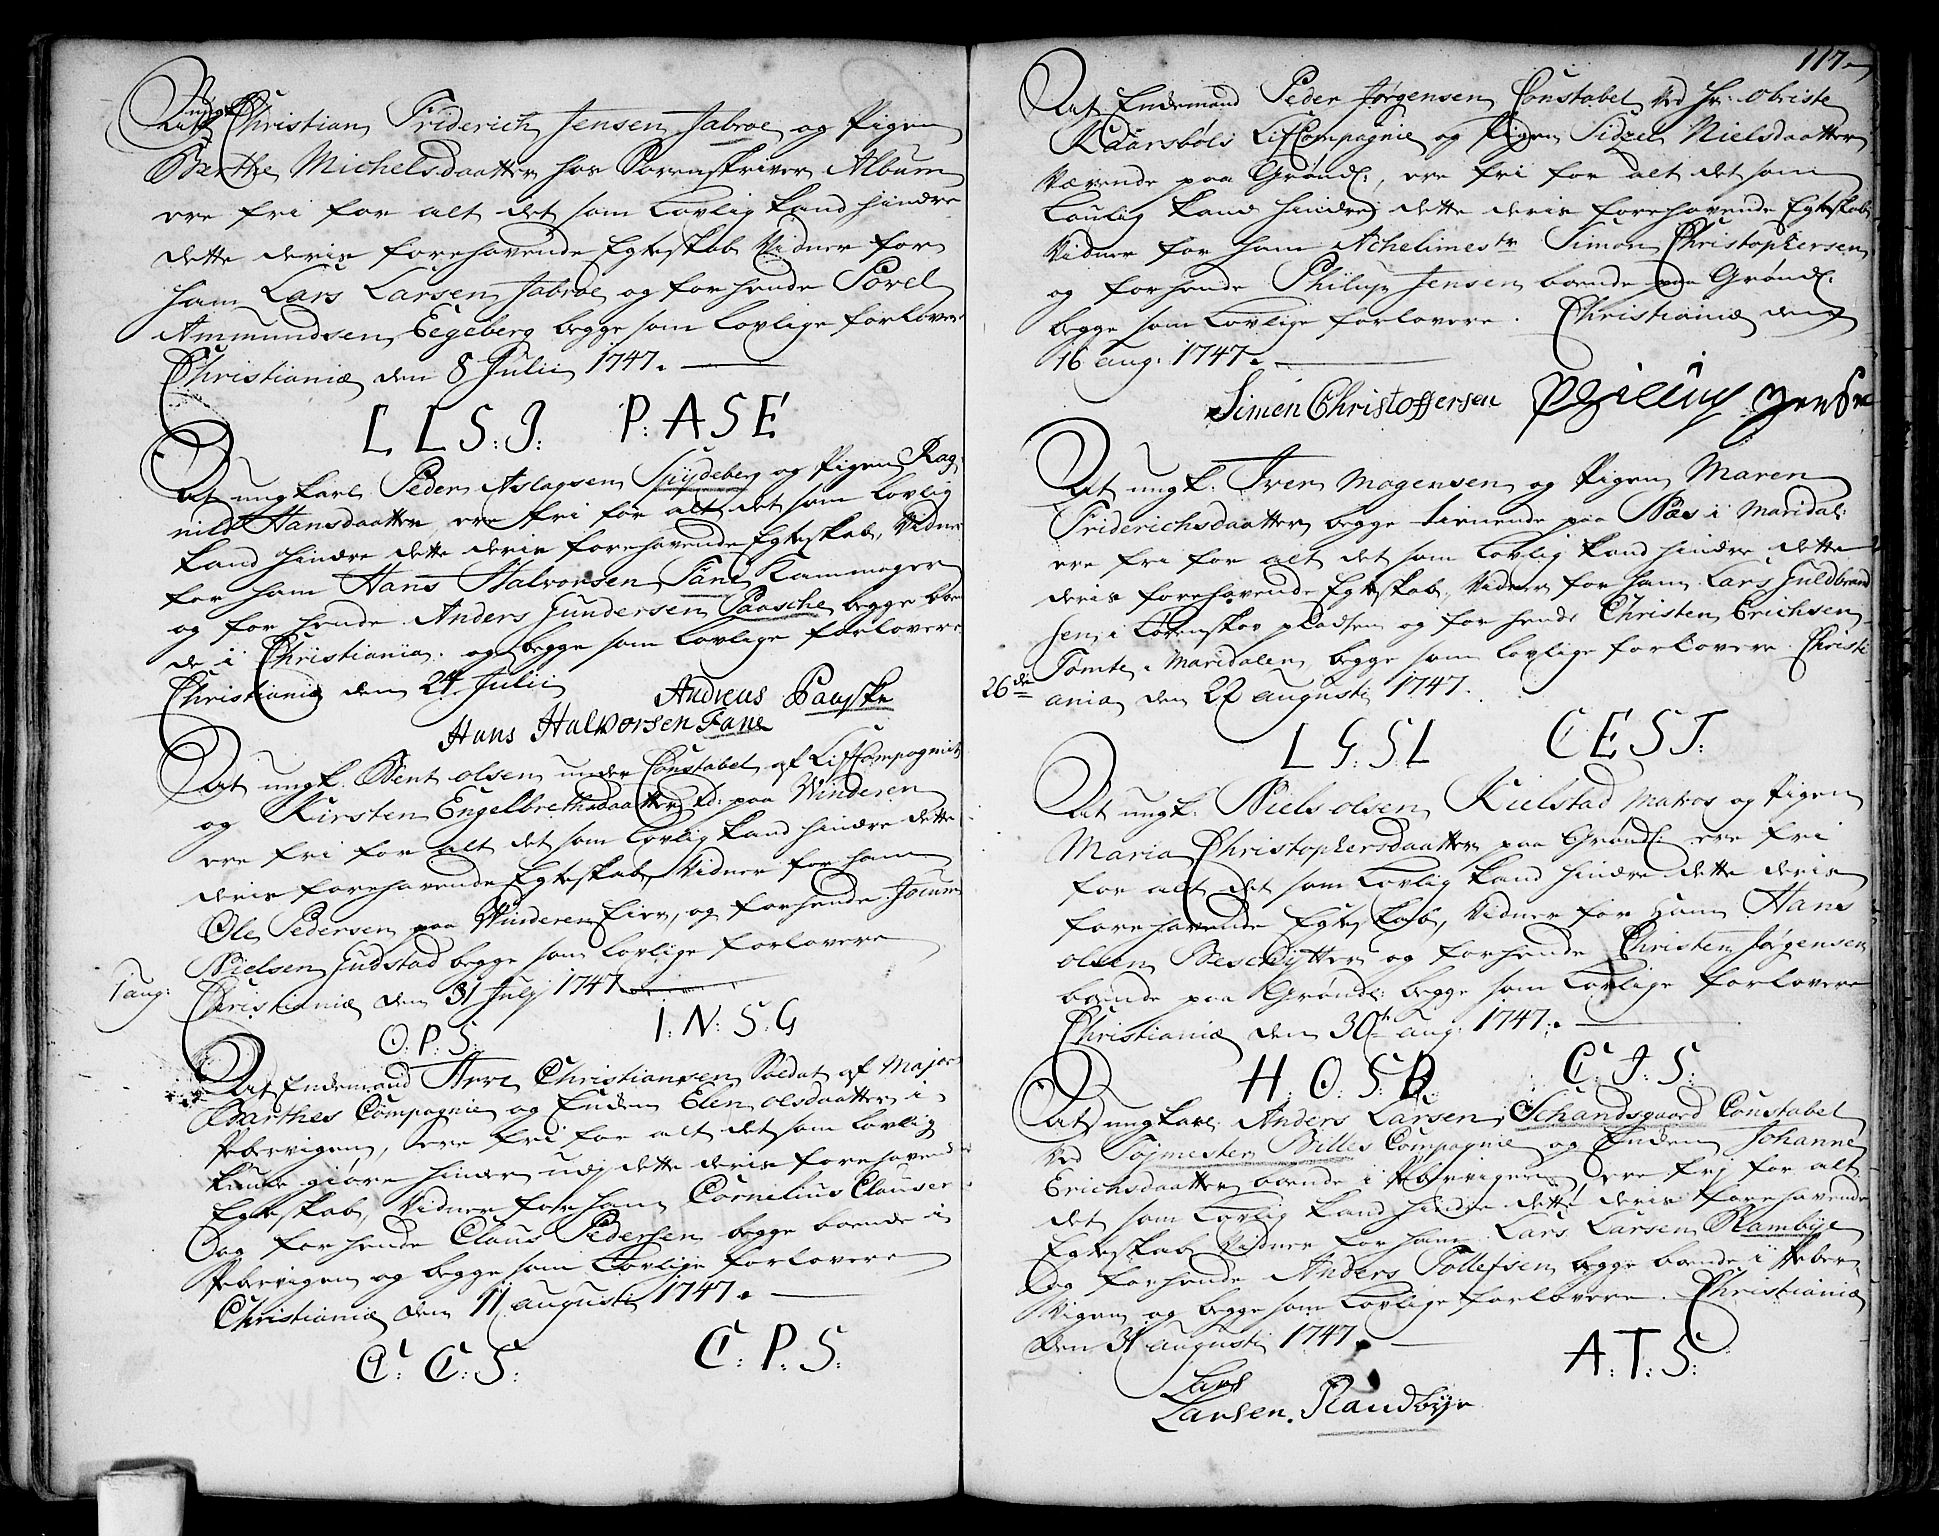 ungk.
At Christian Friderich Jensen Jabroe og Pigen
Berthe Michelsdaatter hos Sorenskriver Album
ere fri for alt det som Lovlig kand hindre
dette deris forehavende Egteskab, Vidner for
ham Lars Larsen Jabroe og for hende Povel
Ammundsen Eegeberg begge som Lovlige forlovere
Christianiæ den 8 Julii 1747.
L L S: J: P: A S E
At ungkarl Peder Aslagsen Spydeberg og Pigen Rag-
nild Hansdaatter ere fri for alt det som Lovlig
kand hindre dette deris forehavende Egteskab, Vidner
for ham Hans Halvorsen Fane Kammager
og for hende Anders Gundersen Paasche begge boen-
de i Christiania. og begge som Lovlige forlovere
Christianiæ den 24 Julii
Andreas Paaske
Hans Halvorsen Fane
At ungk. Bent Olsen under Constabel af LifCompagniet
og Kirsten Engelbrethsdaatter paa Winderen
ere fri for alt det som Lovlig kand hindre dette
deris forehavende Egteskab, Vidner for ham
Ole Pedersen paa Winderen Eier, og for hende Jocum
Nielsen Gudstad begge som Lovlige forlovere
1 aug: Christianiæ den 31 Julj 1747.
O: P: S: I: N: S: G
At Enckemand Arve Christiansen Soldat af Major
Barthes Compagnie og Encken Elen Olsdaatter i
Pebervigen, ere fri for alt det som Lovlig
kunde giøre hinder udj dette deris forehavende
Egteskab, Vidner for ham Cornelius Clausen
og for hende Claus Pedersen begge boende i
Pebervigen og begge som Lovlige forlovere
Christianiæ den 11 augusti 1747.
C: C: S: C: P: S:
117.
At Enckemand Peder Jørgensen Constabel ved Hr: Obriste
Kaarsbøls LifCompagnie og Pigen Sidzel Nielsdaatter
Værende paa Grønd:, ere fri for alt det som
Loulig kand hindre dette deris forehavende Egteskab,
Vidner for ham Simon Christophersen
og for hende Philup Jensen boende paa Grønd:
begge som Lovlige forlovere. Christianiæ den
16 aug: 1747.
Simen Christoffersen Philup Jensen
At ungk. Iver Mogensen og Pigen Maren
Friderichsdaatter begge tienende paa Næs i Maridal:
ere fri for alt det som Lovlig kand hindre dette
deris forehavende Egteskab, Vidner for ham Lars Guldbrand-
sen i Lørenskov pladsen og for hende Christen Erichsen
Tomte i Maridalen begge som Lovlige forlovere. Christi-
26de ania den 22 augusti 1747.
L G: S L C E S T:
At ungk. Niels Olsen Kielstad Matros og Pigen
Maria Christophersdaatter paa Grønd: ere fri
for alt det som Lovlig kand hindre dette deris
forehavende Egteskab, Vidner for ham Hans
Olsen Beschytter og for hende Christen Jørgensen
boende paa Grønd: begge som Lovlige forlovere
Christianiæ den 30th aug: 1747.
H. O. S. B. C: J: S:
At ungkarl Anders Larsen Schandsgaard Constabel
ved Tøjmester Billes Compagnie og Encken Johanne
Erichsdaatter boende i Pebervigen ere frj for alt
det som Lovlig kand hindre dette deris forehavende
Egteskab, Vidner for ham Lars Larsen Rambye
og for hende Anders Tollefsen begge boende i Peber-
vigen og begge som Lovlige forlovere. Christianiæ
den 31 augusti 1747.
A: T: S:
Lars
Larsen. Randbye